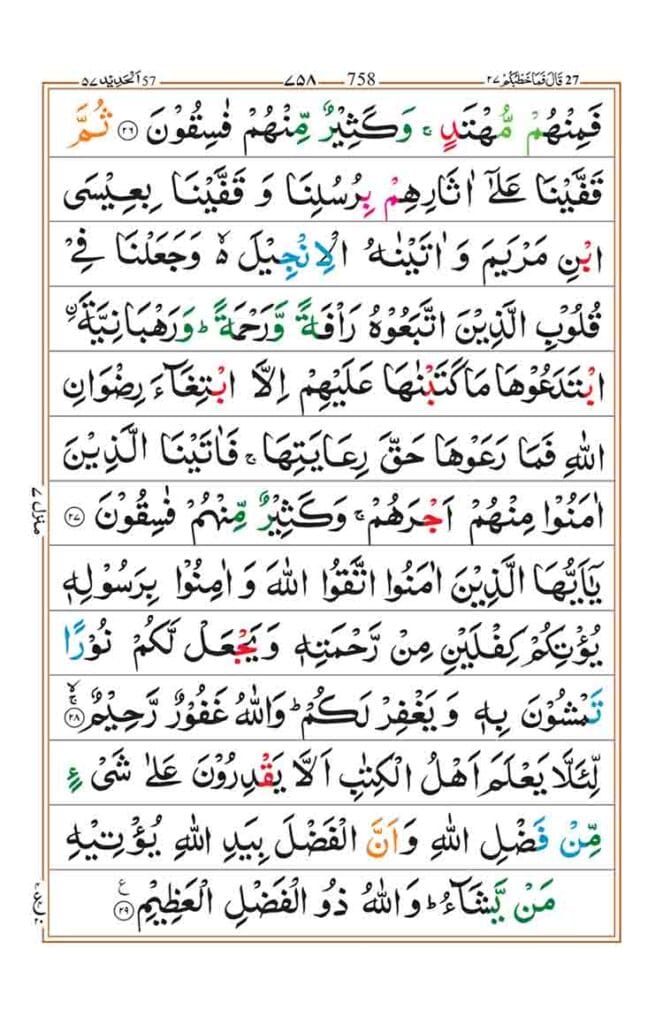 ٢٧ قَالَ فَمَا خَطْبُكُمْ 27 758 ٧٥٨ 57 اَلْحَدِيْد ٥٧
فَمِنْهُمْ مُّهْتَدٍ ۚ وَكَثِيْرٌ مِّنْهُمْ فٰسِقُوْنَ ﴿٢٦﴾ ثُمَّ
قَفَّيْنَا عَلٰۤى اٰثَارِهِمْ بِرُسُلِنَا وَ قَفَّيْنَا بِعِيْسَى
ابْنِ مَرْيَمَ وَ اٰتَيْنٰهُ الْاِنْجِيْلَ ۙ۬ وَ جَعَلْنَا فِيْ
قُلُوْبِ الَّذِيْنَ اتَّبَعُوْهُ رَاْفَةً وَّرَحْمَةً ؕ وَرَهْبَانِيَّةَ ۨ
ابْتَدَعُوْهَا مَا كَتَبْنٰهَا عَلَيْهِمْ اِلَّا ابْتِغَآءَ رِضْوَانِ
اللّٰهِ فَمَا رَعَوْهَا حَقَّ رِعَايَتِهَا ۚ فَاٰتَيْنَا الَّذِيْنَ
اٰمَنُوْا مِنْهُمْ اَجْرَهُمْ ۚ وَكَثِيْرٌ مِّنْهُمْ فٰسِقُوْنَ ﴿٢٧﴾
يٰۤاَيُّهَا الَّذِيْنَ اٰمَنُوا اتَّقُوا اللّٰهَ وَ اٰمِنُوْا بِرَسُوْلِهٖ
يُؤْتِكُمْ كِفْلَيْنِ مِنْ رَّحْمَتِهٖ وَ يَجْعَلْ لَّكُمْ نُوْرًا
تَمْشُوْنَ بِهٖ وَ يَغْفِرْ لَكُمْ ؕ وَاللّٰهُ غَفُوْرٌ رَّحِيْمٌ ﴿٢٨﴾ ۚۙ
لِّئَلَّا يَعْلَمَ اَهْلُ الْكِتٰبِ اَلَّا يَقْدِرُوْنَ عَلٰى شَيْءٍ
مِّنْ فَضْلِ اللّٰهِ وَاَنَّ الْفَضْلَ بِيَدِ اللّٰهِ يُؤْتِيْهِ
مَنْ يَّشَآءُ ؕ وَاللّٰهُ ذُو الْفَضْلِ الْعَظِيْمِ ﴿٢٩﴾ ع
منزل ٧